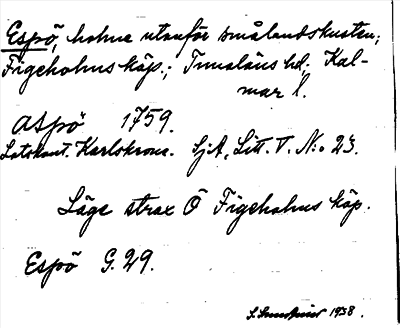 Espö, holme utanför smålandskusten;
Figeholms köp.; Tunaläns hd, Kal-
mar l.
Aspö 1759.
Lotskont. Karlskrona. SjA, Litt. V. No 23.
Läge strax Ö Figeholms köp.
Espö G. 29.
1938.